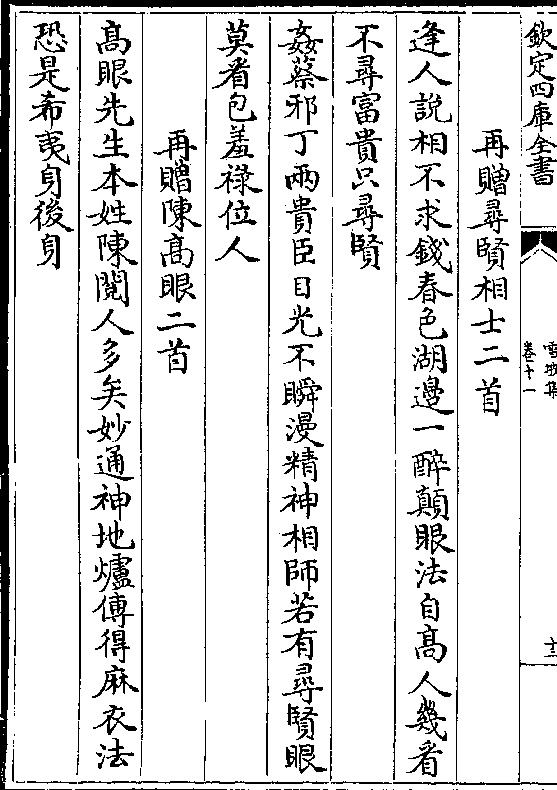 欽定四庫全書
雪坡集
卷十一
十三
再贈尋賢相士二首
逢人說相不求錢春色湖邊一醉顛眼法自高人幾看
不尋富貴只尋賢
姦蔡邪丁兩貴臣目光不瞬漫精神相師若有尋賢眼
莫看包羞祿位人
再贈陳高眼二首
高眼先生本姓陳閱人多矣妙通神地爐傳得麻衣法
恐是希夷身後身